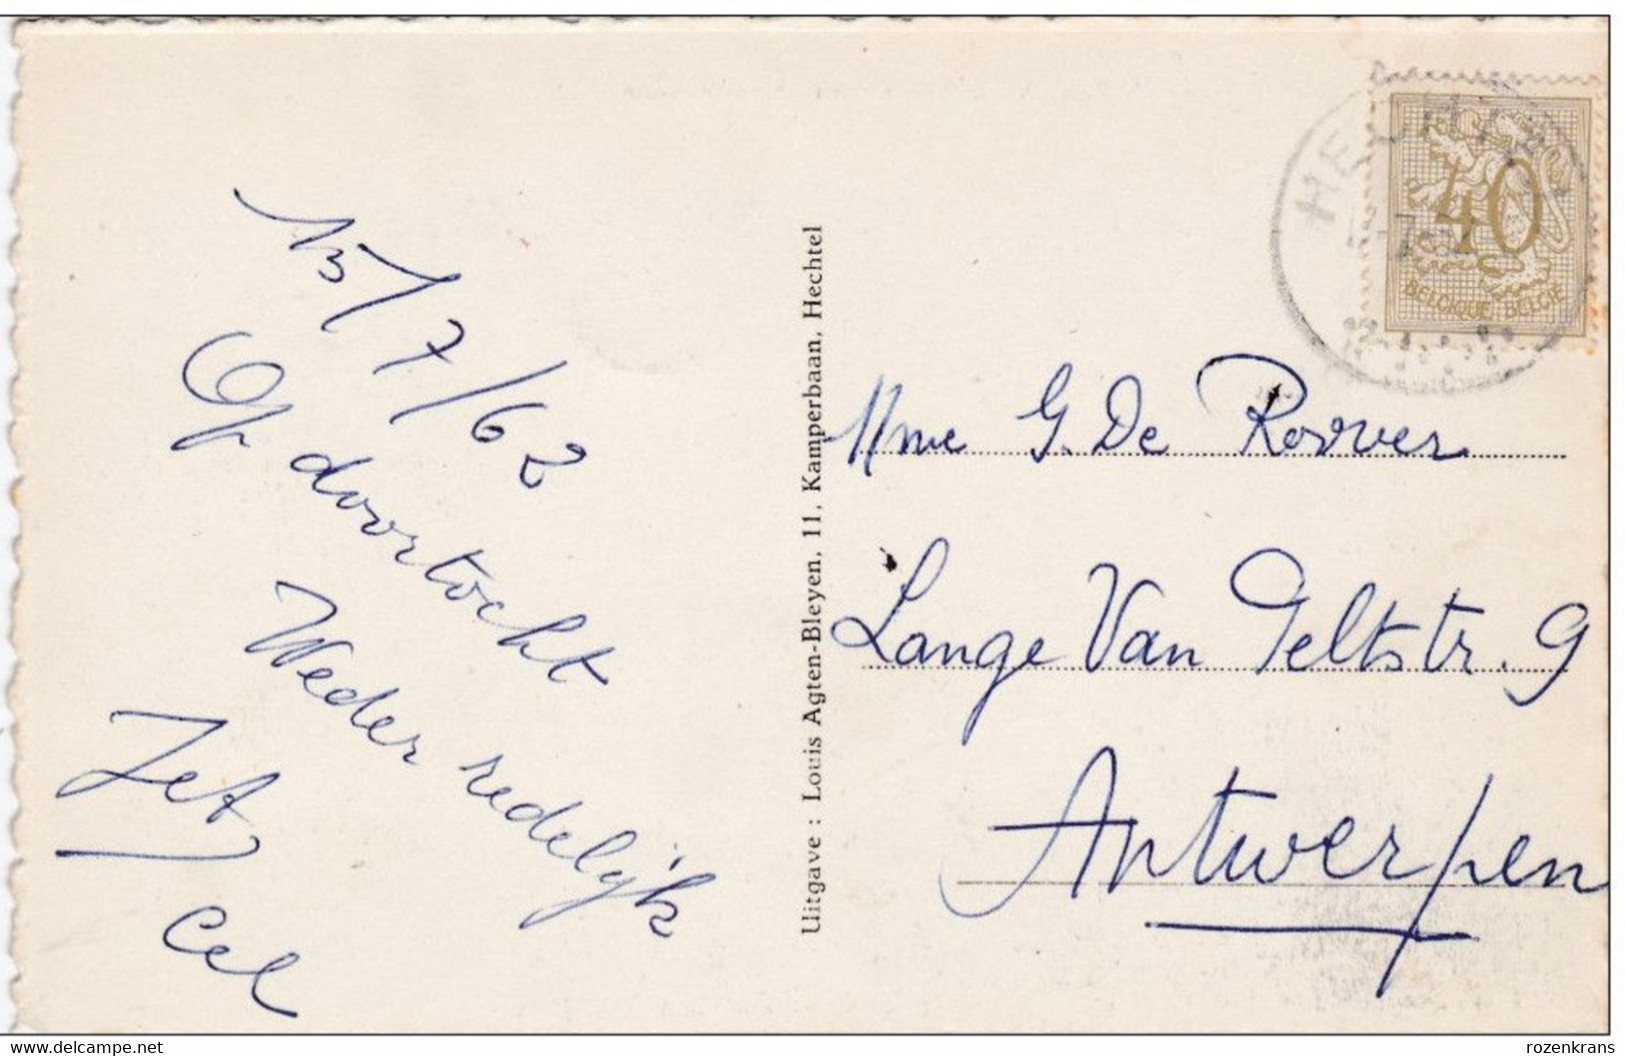 15/7/62
Op doortocht
Weder redelijk
Jet
Cel
Uitgave : Louis Agten-Bleyen, 11, Kamperbaan, Hechtel
HECHTEL
40
BELGIQUE BELGIË
Mme G. De Roover
Lange Van Geltstr. 9
Antwerpen
www.delcampe.net
rozenkrans